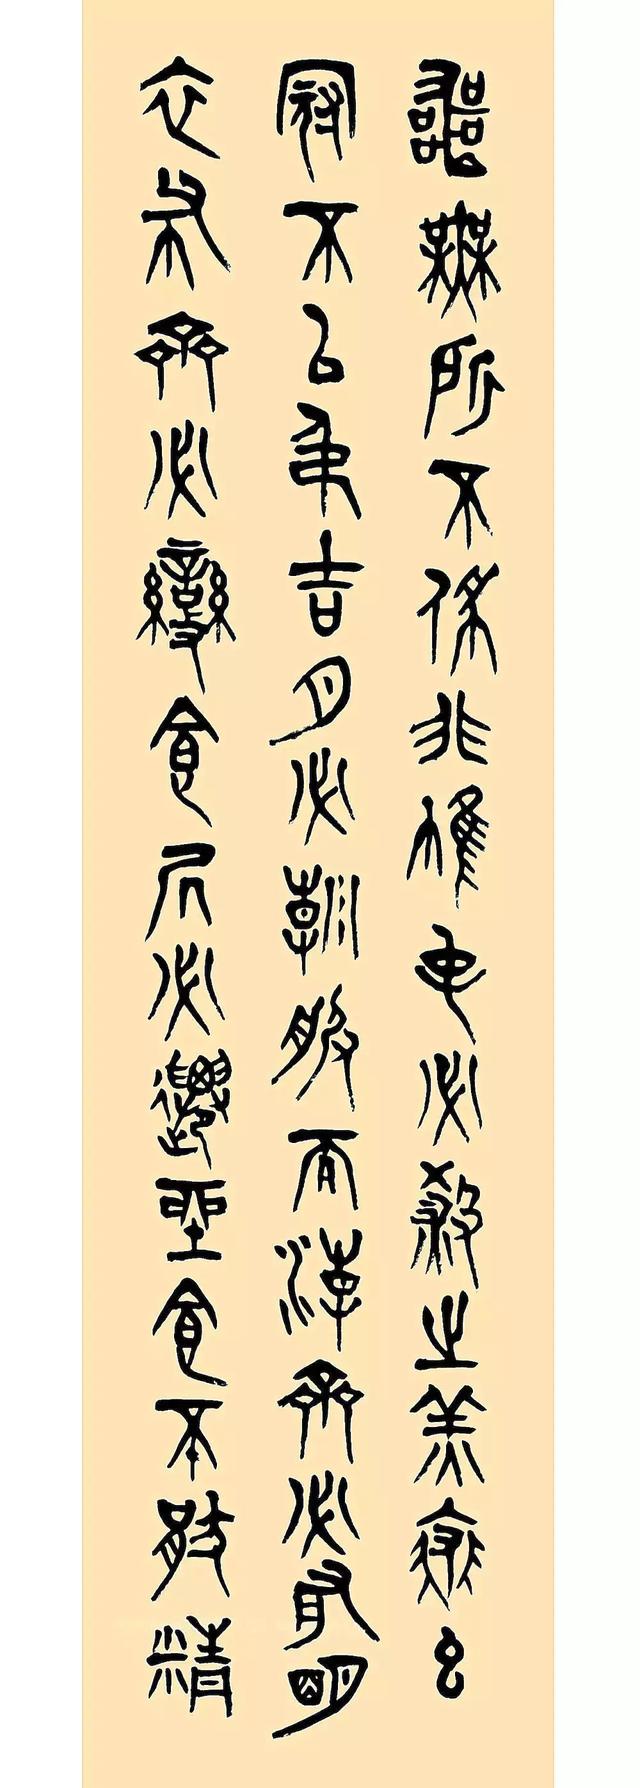 喪無所不佩非帷裳必殺之羔裘玄
冠不以弔吉月必朝服而朝齊必有明
衣布齊必變食居必遷坐食不厭精